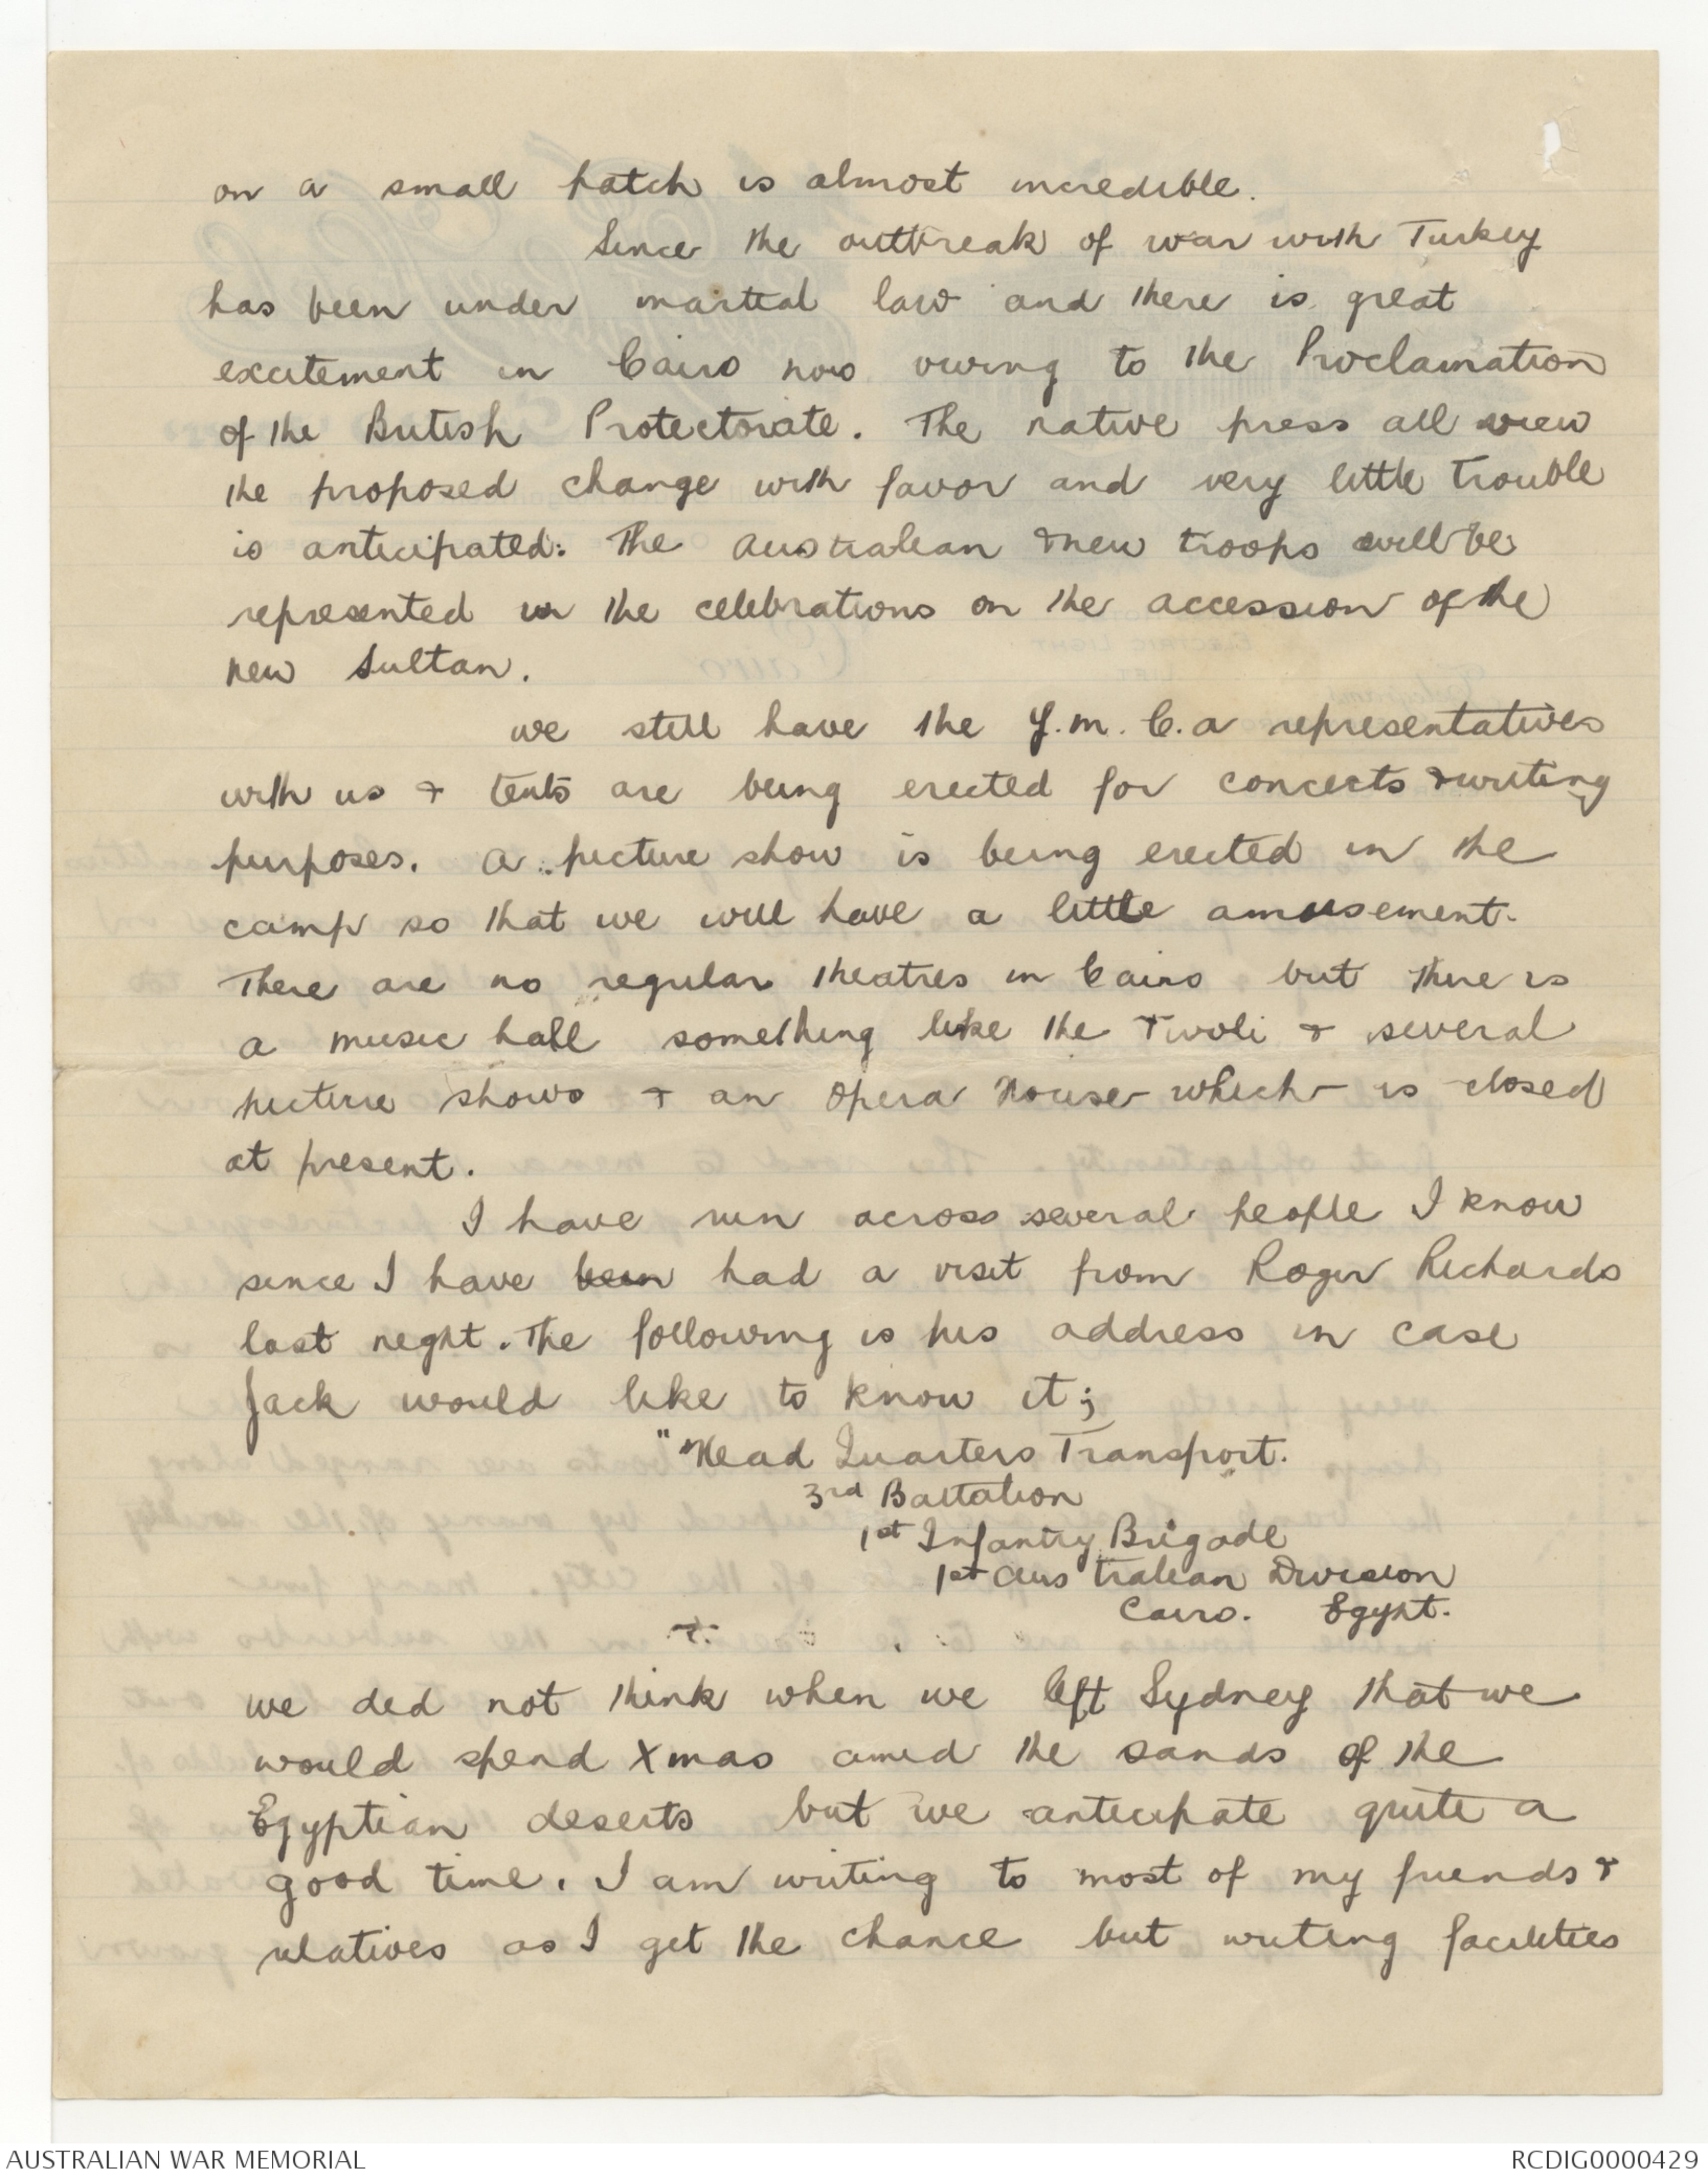 on a small patch is almost incredible.
Since the outbreak of war with Turkey
has been under martial law and there is great
excitement in Cairo now owing to the Proclamation
of the British Protectorate. The native press all view
the proposed change with favor and very little trouble
is anticipated. The Australian & new troops will be
represented in the celebrations on the accession of the
new Sultan.
we still have the Y.M.C.A representatives
with us & tents are being erected for concerts & writing
purposes. A picture show is being erected in the
camp so that we will have a little amusement.
There are no regular theatres in Cairo but there is
a music hall something like the Tivoli & several
picture shows & an Opera House which is closed
at present.
I have run across several people I know
since I have been had a visit from Roger Richards
last night. The following is his address in case
Jack would like to know it;
"Head Quarters Transport.
3rd Battalion
1st Infantry Brigade
1st Australian Division
Cairo. Egypt.
we did not think when we left Sydney that we
would spend Xmas amid the sands of the
Egyptian deserts but we anticipate quite a
good time. I am writing to most of my friends &
relatives as I get the chance but writing facilities
AUSTRALIAN WAR MEMORIAL
RCDIG0000429